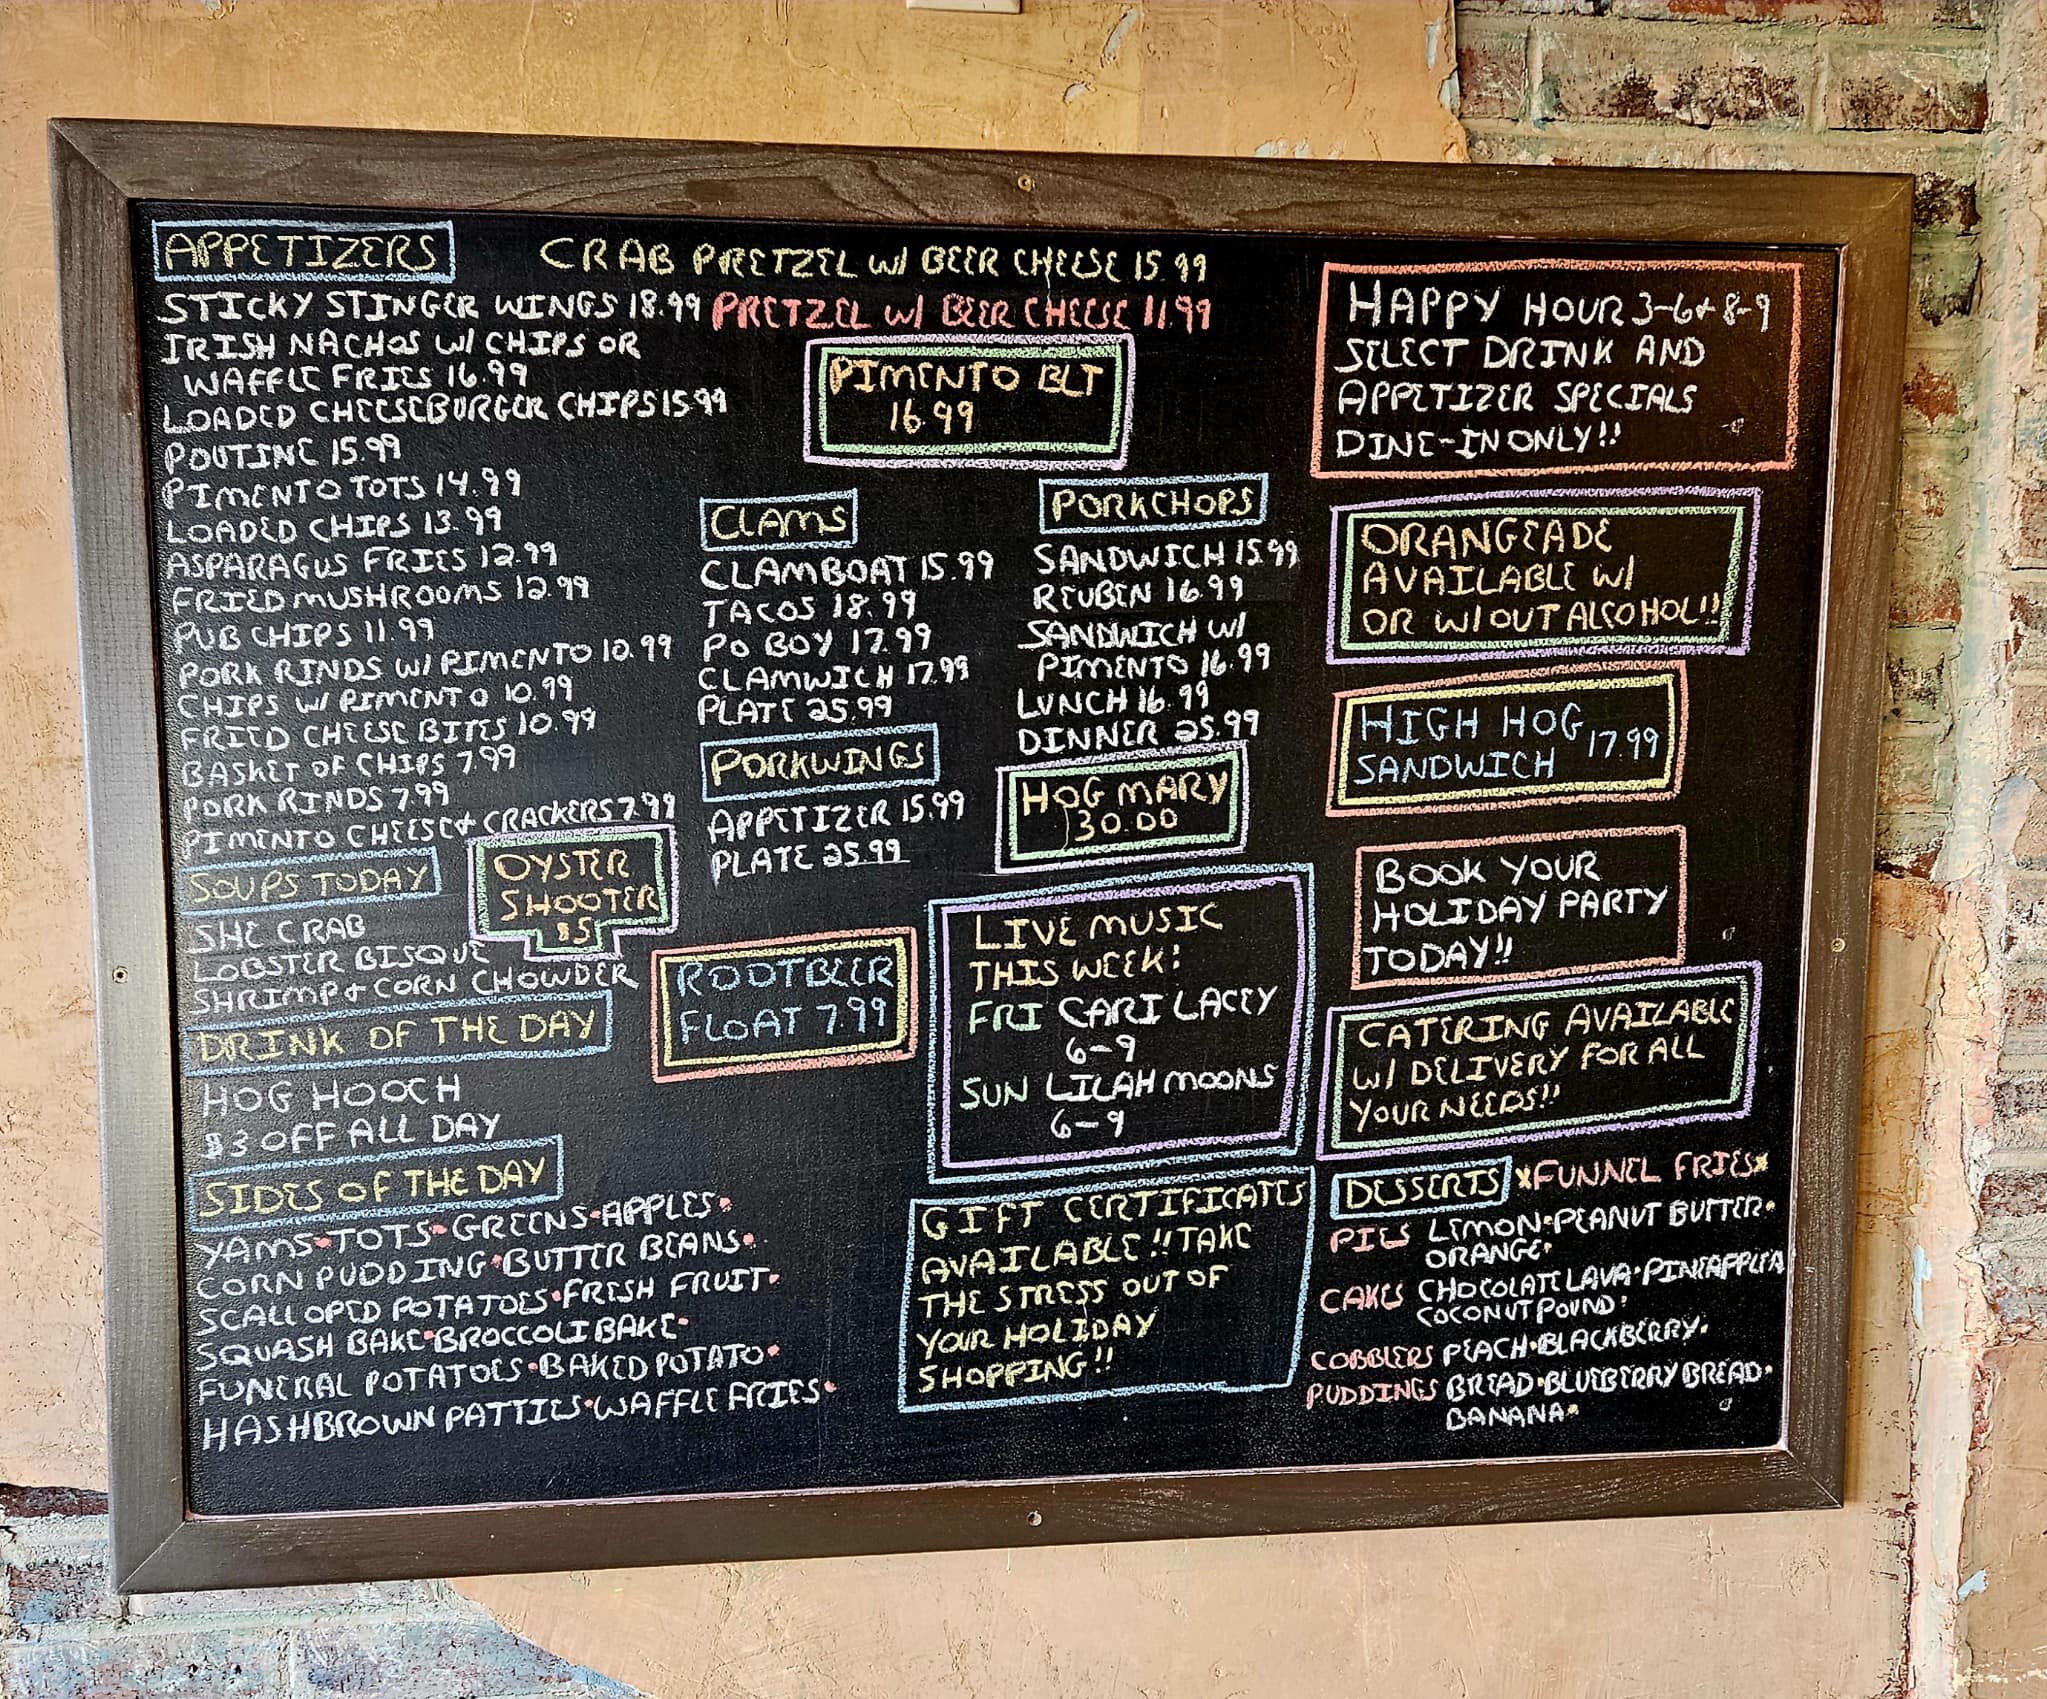 APPETIZERS
CRAB PRETZEL W/ BEER CHEESE 15.99
STICKY STINGER WINGS 18.99
PRETZEL W/ BEER CHEESE 11.99
IRISH NACHOS W/ CHIPS OR
WAFFLE FRIES 16.99
LOADED CHEESEBURGER CHIPS 15.99
POUTINE 15.99
PIMENTO TOTS 14.99
LOADED CHIPS 13.99
ASPARAGUS FRIES 12.99
FRIED MUSHROOMS 12.99
PUB CHIPS 11.99
PORK RINDS W/ PIMENTO 10.99
CHIPS W/ PIMENTO 10.99
FRIED CHEESE BITES 10.99
BASKET OF CHIPS 7.99
PORK RINDS 7.99
PIMENTO CHEESE + CRACKERS 7.99
SOUPS TODAY
SHE CRAB
LOBSTER BISQUE
SHRIMP + CORN CHOWDER
DRINK OF THE DAY
HOG HOOCH
$3 OFF ALL DAY
SIDES OF THE DAY
YAMS • TOTS • GREENS • APPLES •
CORN PUDDING • BUTTER BEANS •
SCALLOPED POTATOES • FRESH FRUIT •
SQUASH BAKE • BROCCOLI BAKE •
FUNERAL POTATOES • BAKED POTATO •
HASHBROWN PATTIES • WAFFLE FRIES •
OYSTER
SHOOTER
$5
PIMENTO BLT
16.99
CLAMS
CLAMBOAT 15.99
TACOS 18.99
PO BOY 17.99
CLAMWICH 17.99
PLATE 25.99
PORKWINGS
APPETIZER 15.99
PLATE 25.99
ROOTBEER
FLOAT 7.99
PORKCHOPS
SANDWICH 15.99
REUBEN 16.99
SANDWICH W/
PIMENTO 16.99
LUNCH 16.99
DINNER 25.99
HOG MARY
30.00
LIVE MUSIC
THIS WEEK!
FRI CARI LACEY
6-9
SUN LILAH MOONS
6-9
GIFT CERTIFICATES
AVAILABLE!! TAKE
THE STRESS OUT OF
YOUR HOLIDAY
SHOPPING!!
HAPPY HOUR 3-6 + 8-9
SELECT DRINK AND
APPETIZER SPECIALS
DINE-IN ONLY!!
ORANGEADE
AVAILABLE W/
OR W/OUT ALCOHOL!!
HIGH HOG
SANDWICH 17.99
BOOK YOUR
HOLIDAY PARTY
TODAY!!
CATERING AVAILABLE
W/ DELIVERY FOR ALL
YOUR NEEDS!!
DESSERTS *FUNNEL FRIES*
PIES LEMON • PEANUT BUTTER •
ORANGE •
CAKES CHOCOLATE LAVA • PINEAPPLE
COCONUT POUND •
COBBLERS PEACH • BLACKBERRY •
PUDDINGS BREAD • BLUEBERRY BREAD •
BANANA •